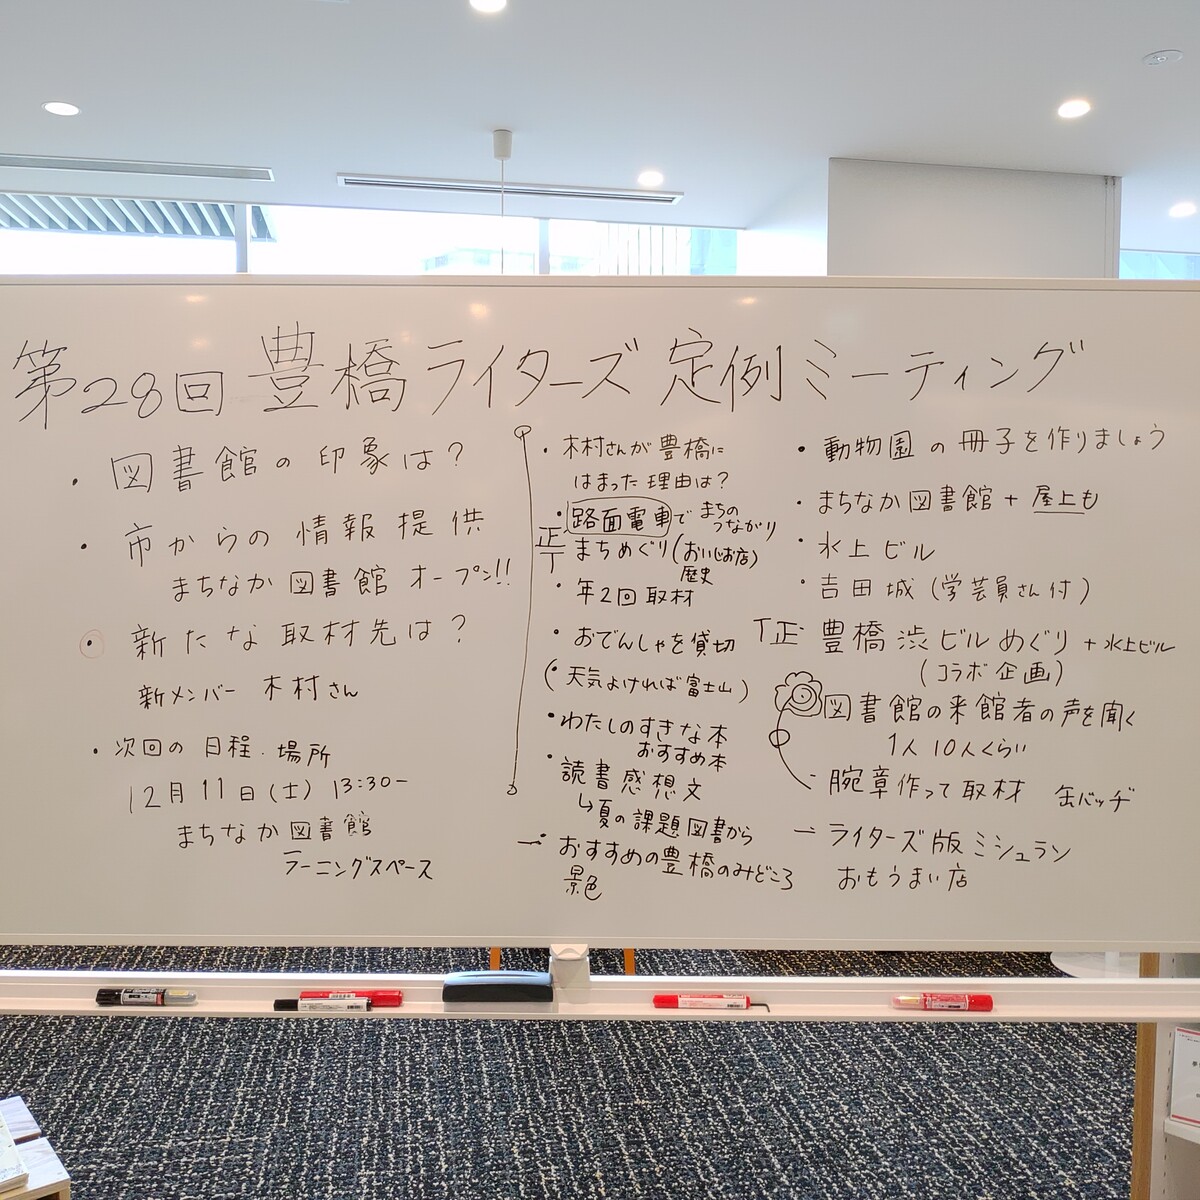 第28回 豊橋ライターズ 定例ミーティング
・図書館の印象は？
・市からの情報提供
まちなか図書館 オープン!!
・新たな取材先は？
新メンバー 木村さん
・次回の日程・場所
12月11日(土) 13:30-
まちなか図書館
ラーニングスペース
・木村さんが豊橋に
はまった理由は？
・路面電車で まちの
つながり
正丅 まちめぐり(おいしいお店)
歴史
・年2回取材
・おでんしゃを貸切
(・天気よければ富士山)
・わたしのすきな本
おすすめ本
・読書感想文
↳夏の課題図書から
おすすめの豊橋のみどころ
景色
・動物園の冊子を作りましょう
・まちなか図書館+屋上も
・水上ビル
・吉田城(学芸員さん付)
丅正 豊橋渋ビルめぐり+水上ビル
(コラボ企画)
図書館の来館者の声を聞く
1人10人くらい
腕章作って取材 缶バッヂ
ライターズ版ミシュラン
おもうまい店